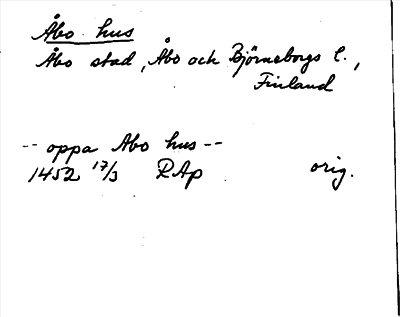 Åbo hus
Åbo stad, Åbo och Björneborgs l.,
Finland
-- oppa Abo hus --
1452 17/3 RAp orig.